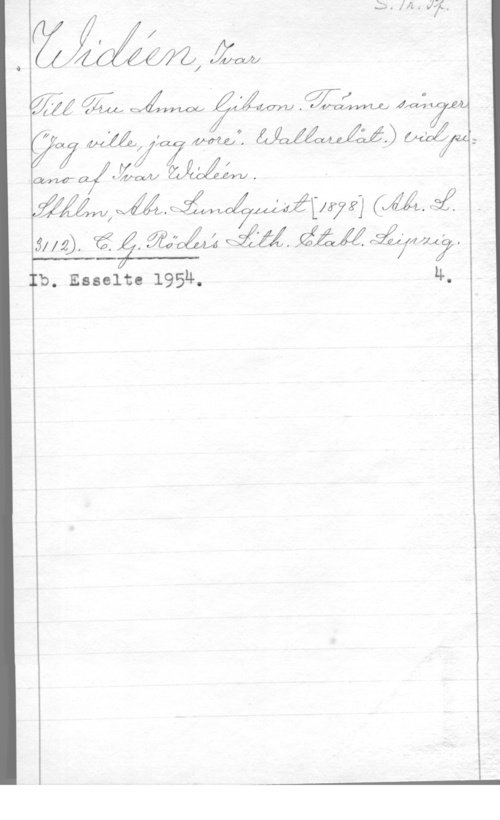 S. Tr. Pf.
Widéen, Ivar
Till Fru Anna Gibson. Tvänne sånger
("Jag ville, jag vore". Wallarelåt.) vid pi=
ano af Ivar Widéen.
Sthlm, Abr. Lundquist [1898] (Abr. L.
3112). C. G. Röder's Lith. Etabl. Leipzig.
Ib. Esselte 1954. 4.